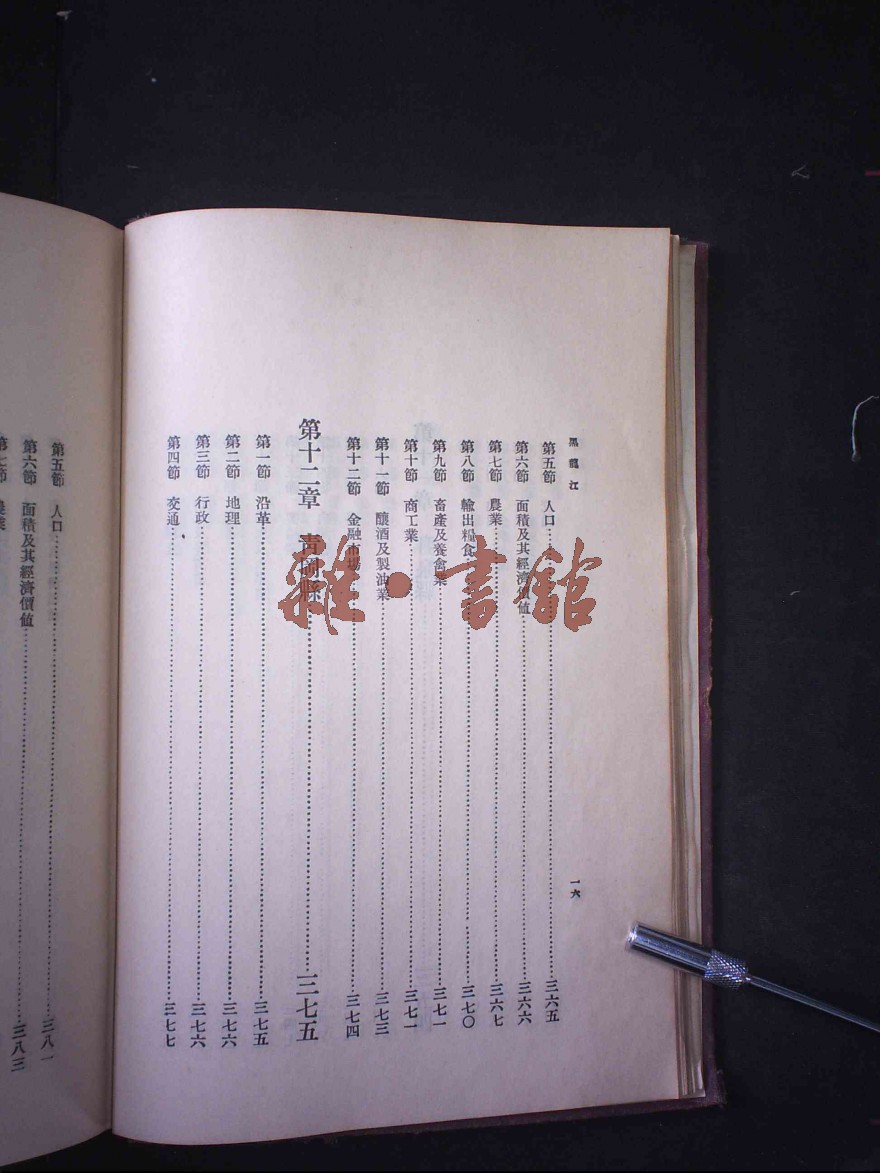 黑龍江
一六
第五節 人口……三六五
第六節 面積及其經濟價值……三六六
第七節 農業……三六七
第八節 輸出糧食……三七〇
第九節 畜產及養禽業……三七一
第十節 商工業……三七一
第十一節 釀酒及製油業……三七三
第十二節 金融市場……三七四
第十二章 青岡縣……三七五
第一節 沿革……三七五
第二節 地理……三七六
第三節 行政……三七六
第四節 交通……三七七
第五節 人口……三八一
第六節 面積及其經濟價值……三八三
雜·書館